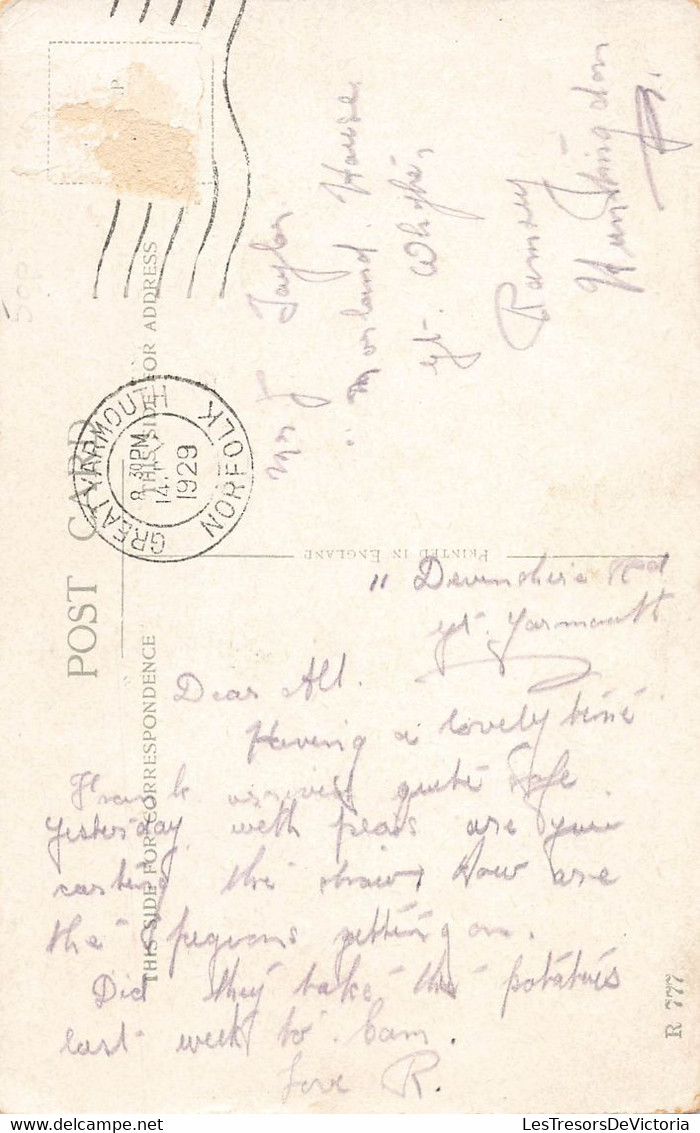 POST CARD
THIS SIDE FOR CORRESPONDENCE
THIS SIDE FOR ADDRESS
PRINTED IN ENGLAND
GREAT YARMOUTH
8 30PM
14.
1929
NORFOLK
Mr J Taylor
"Morland House
Gt. Whyte,
Ramsey
Huntingdon
11 Devonshire Rd
Gt. Yarmouth
Dear Alf.
Having a lovely time
Frank arrived quite safe
yesterday with peas are you
carting the straw. How are
the pigeons getting on.
Did they take the potatoes
last week to Cam.
Love R.
R 777
LesTresorsDeVictoria.com